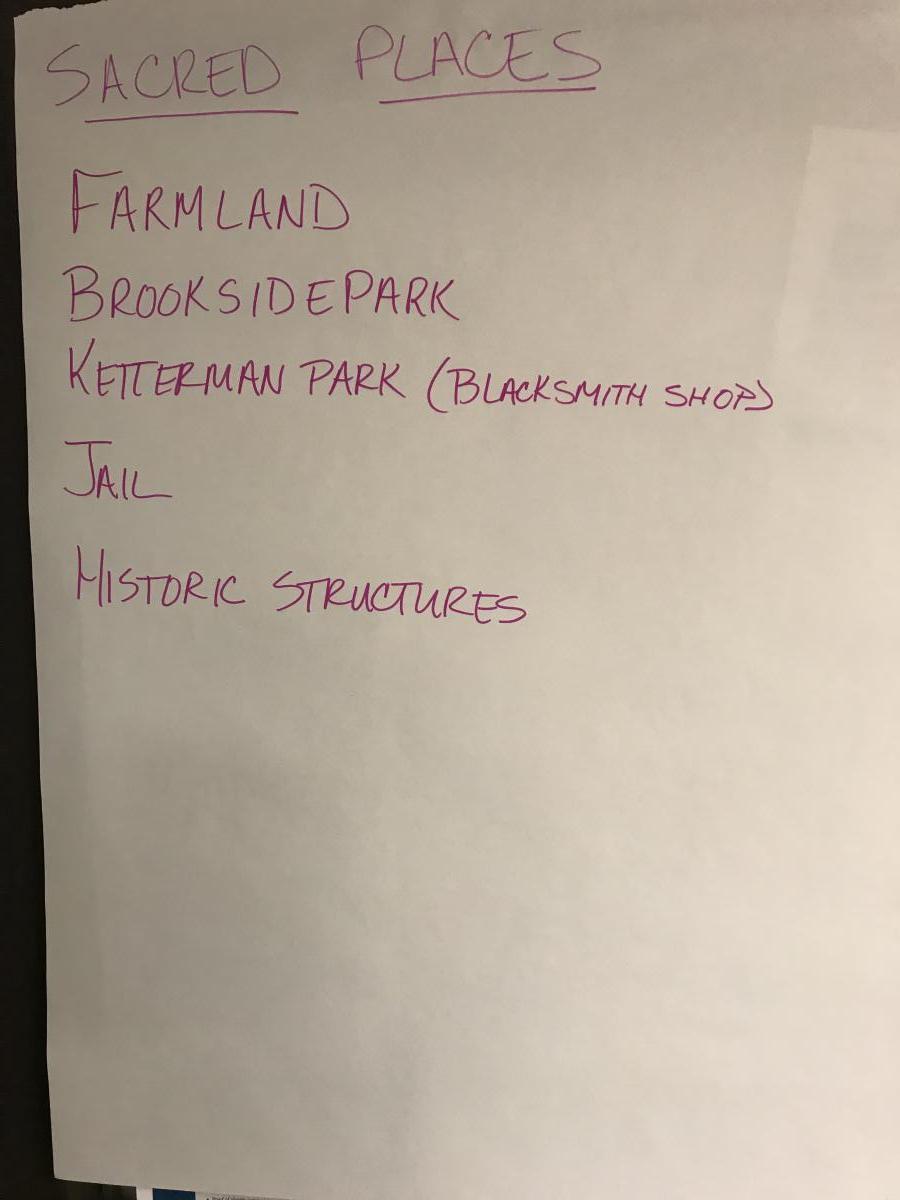 SACRED PLACES
FARMLAND
BROOKSIDE PARK
KETTERMAN PARK (BLACKSMITH SHOP)
JAIL
HISTORIC STRUCTURES